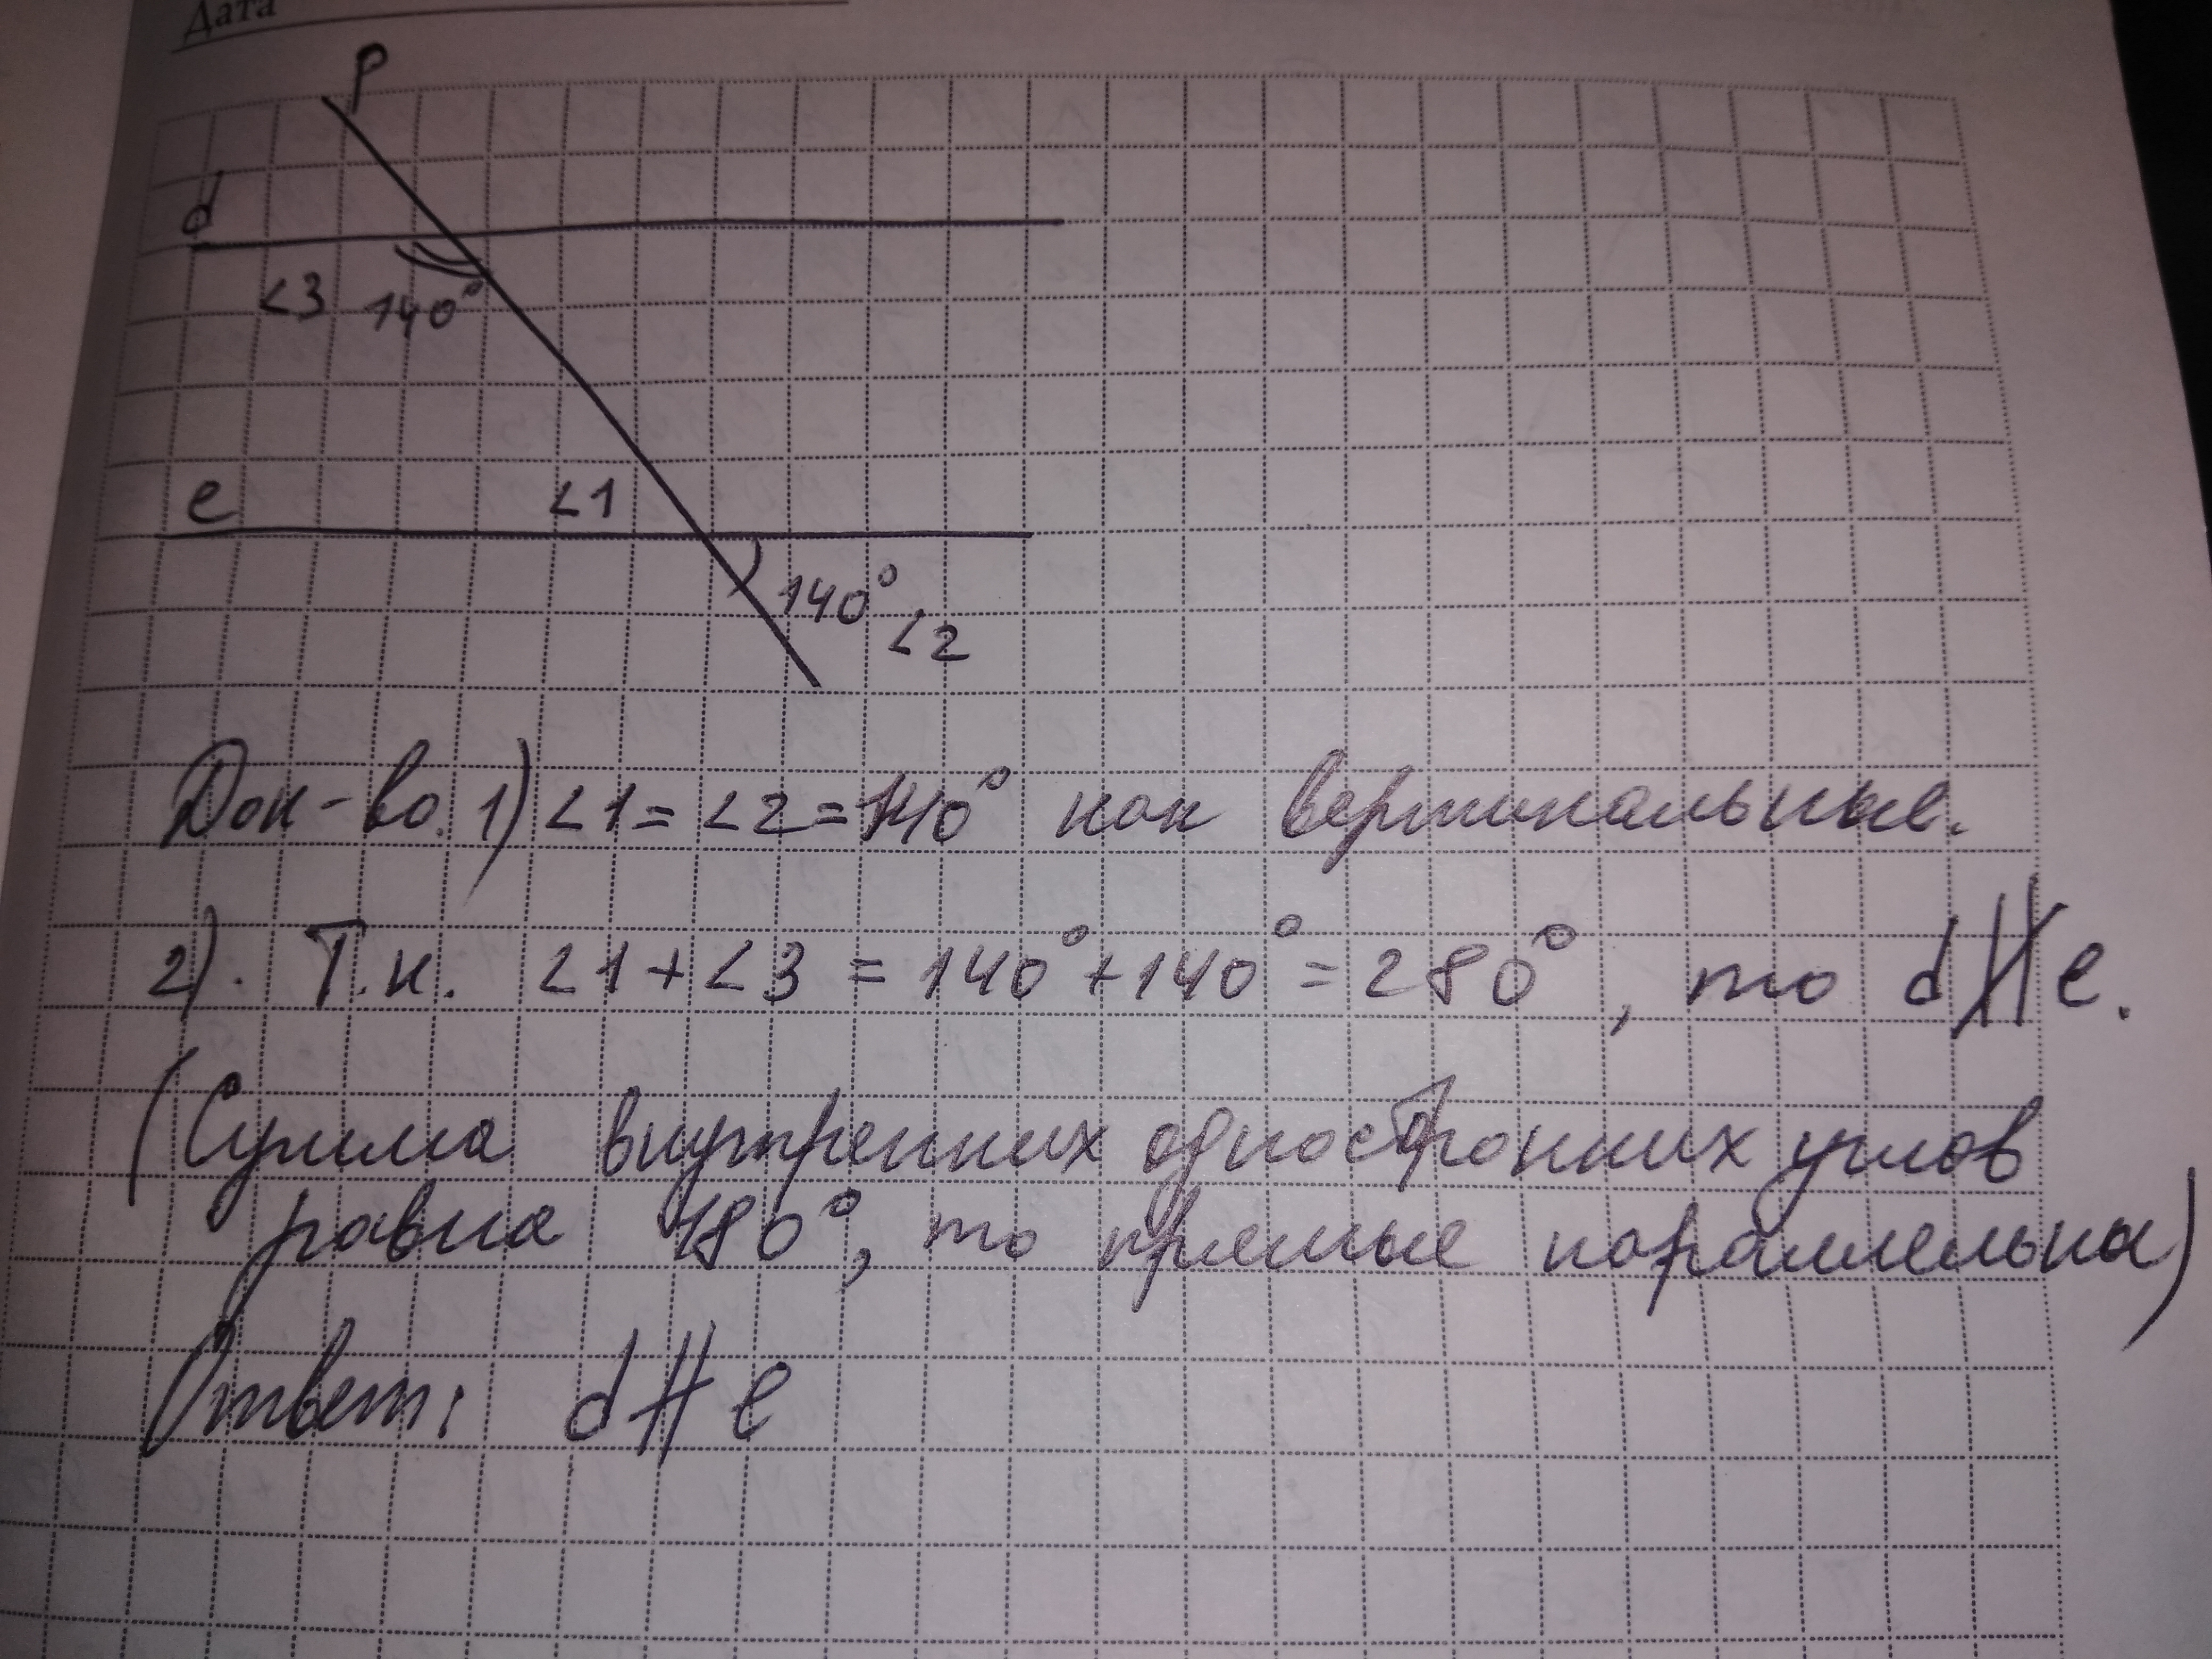 Дата
p
d
∠3 140°
e ∠1
140°
∠2
Док-во. 1) ∠1 = ∠2 = 140° как вертикальные.
2). Т.к. ∠1 + ∠3 = 140° + 140° = 280°, то d ∦ e.
(Сумма внутренних односторонних углов
равна 180°, то прямые параллельны)
Ответ: d ∦ e